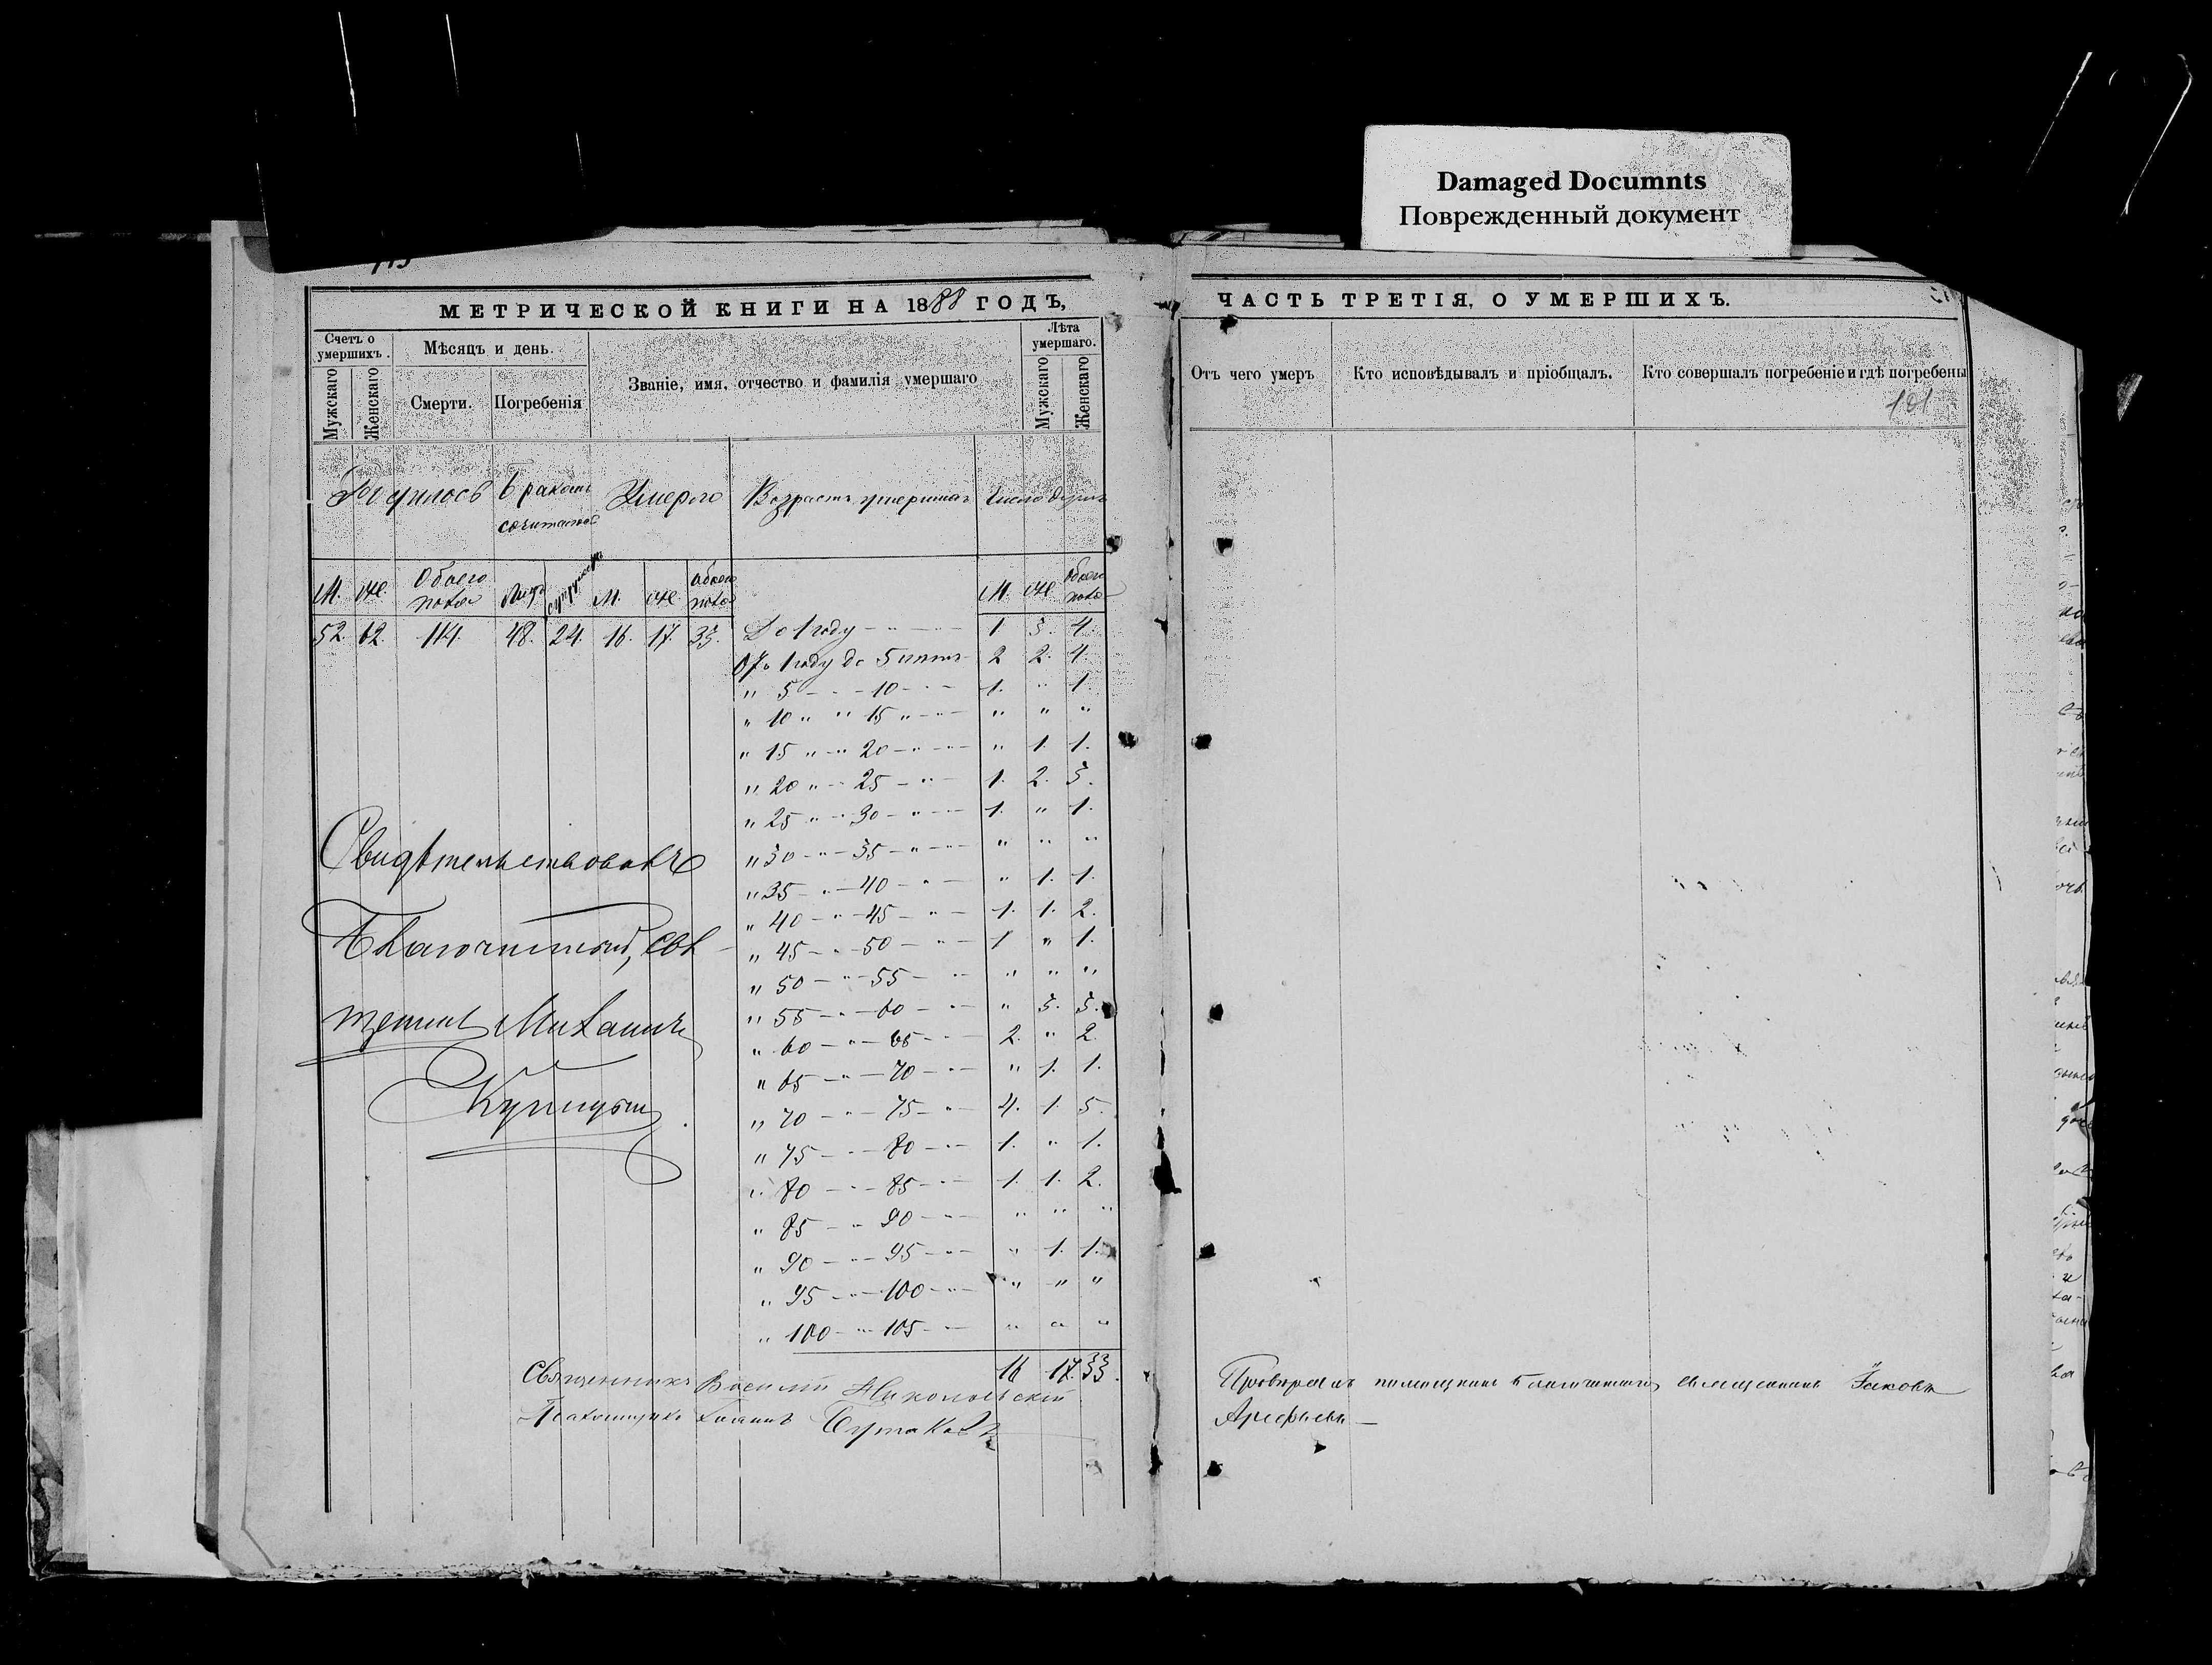 Damaged Documnts
Поврежденный документ
МЕТРИЧЕСКОЙ КНИГИ НА 1888 ГОДЪ,
Счетъ о умершихъ.
Мужскаго
Женскаго
Мѣсяцъ и день.
Смерти.
Погребенія
Званіе, имя, отчество и фамилія умершаго
Лѣта умершаго.
Мужскаго
Женскаго
Бракомъ сочитанос
Умерло
Возрастъ умершихъ
Число душъ
М. же. Обоего пола
М. же обоего пола
М. же обоего пола
52. 62. 114. 48. 24. 16. 17. 33.
До 1 году - - - 1. 3. 4.
От 1 году до 5 лѣтъ 2 2. 4.
" 5 - - 10 - - 1. " 1.
" 10 " " 15 " - " " "
" 15 " - 20 - - " 1. 1.
" 20 " - 25 - " 1. 2. 3.
" 25 " - 30 - " - 1. " 1.
" 30 - " - 35 - " - " " "
" 35 - " - 40 - " - " 1. 1.
" 40 - " - 45 - " - 1. 1. 2.
" 45 - " - 50 - " - 1 " 1.
" 50 - " - 55 - " " " "
" 55 - " - 60 - " - " 3. 3.
" 60 - " - 65 - " - 2. " 2.
" 65 - " - 70 - " - " 1. 1.
" 70 - " - 75 - " - 4. 1. 5.
" 75 - " - 80 - " - 1. " 1.
" 80 - " - 85 - " - 1. 1. 2.
" 85 - " - 90 - " - " " "
" 90 - " - 95 - " - " 1. 1.
" 95 - " - 100 - " - " " "
" 100 - " - 105 - " - " " "
16 17. 33.
Свидѣтельствовалъ
Благочинный, свя-
щенник Михаилъ
Купицын
Священникъ Василій Никольскій
Псаломщикъ Іоаннъ
ЧАСТЬ ТРЕТІЯ, О УМЕРШИХЪ.
Отъ чего умеръ
Кто исповѣдывалъ и пріобщалъ.
Кто совершалъ погребеніе и гдѣ погребены
101
Провѣрялъ помощникъ благочиннаго, священникъ Іаковъ
Арефьевъ